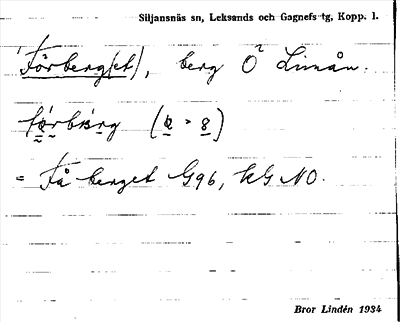 Siljansnäs sn, Leksands och Gagnefs tg, Kopp. l.
Fårberg(et), berg Ö Limån.
= Få berget G96, KG NO.
Bror Lindén 1934